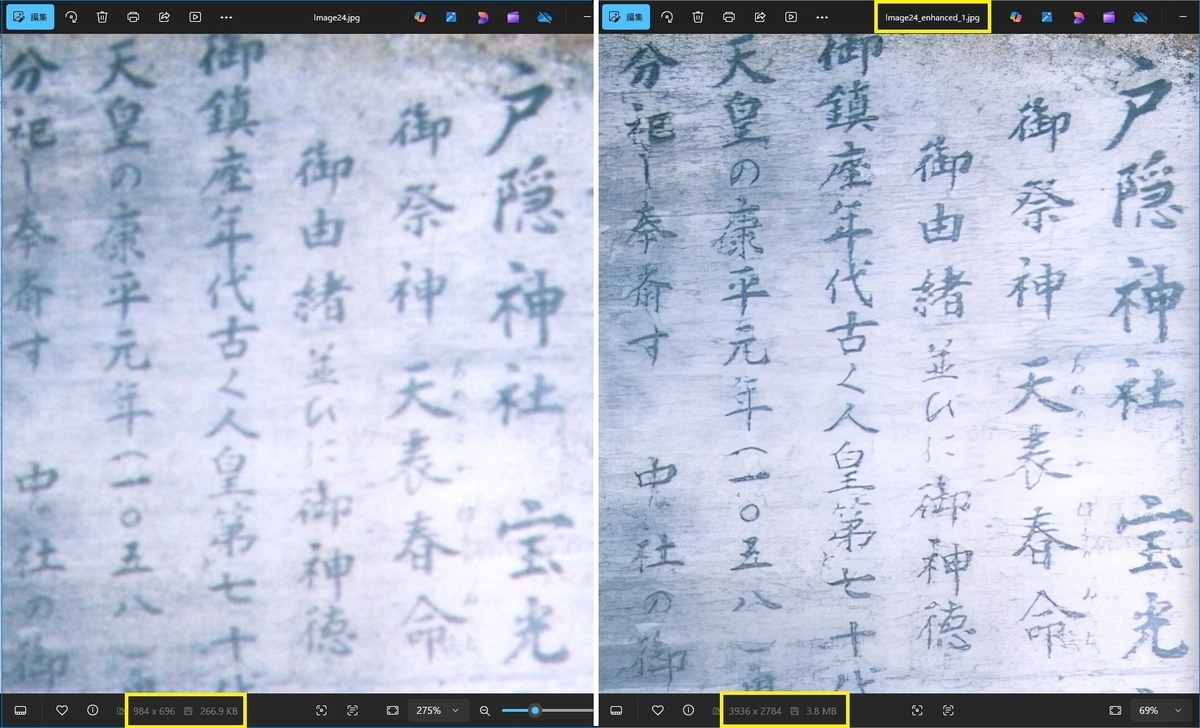 編集
Image24.jpg
戸隠神社 宝光
御祭神 天表春命
御由緒並ひに御神徳
御鎮座年代古く人皇第七十
天皇の康平元年(一〇五八
分祀し奉斎す 中社の御
984 x 696
266.9 KB
275%
編集
Image24_enhanced_1.jpg
戸隠神社 宝光
御祭神 天表春命
御由緒並ひに御神徳
御鎮座年代古く人皇第七十
天皇の康平元年(一〇五八
分祀し奉斎す 中社の御
3936 x 2784
3.8 MB
69%